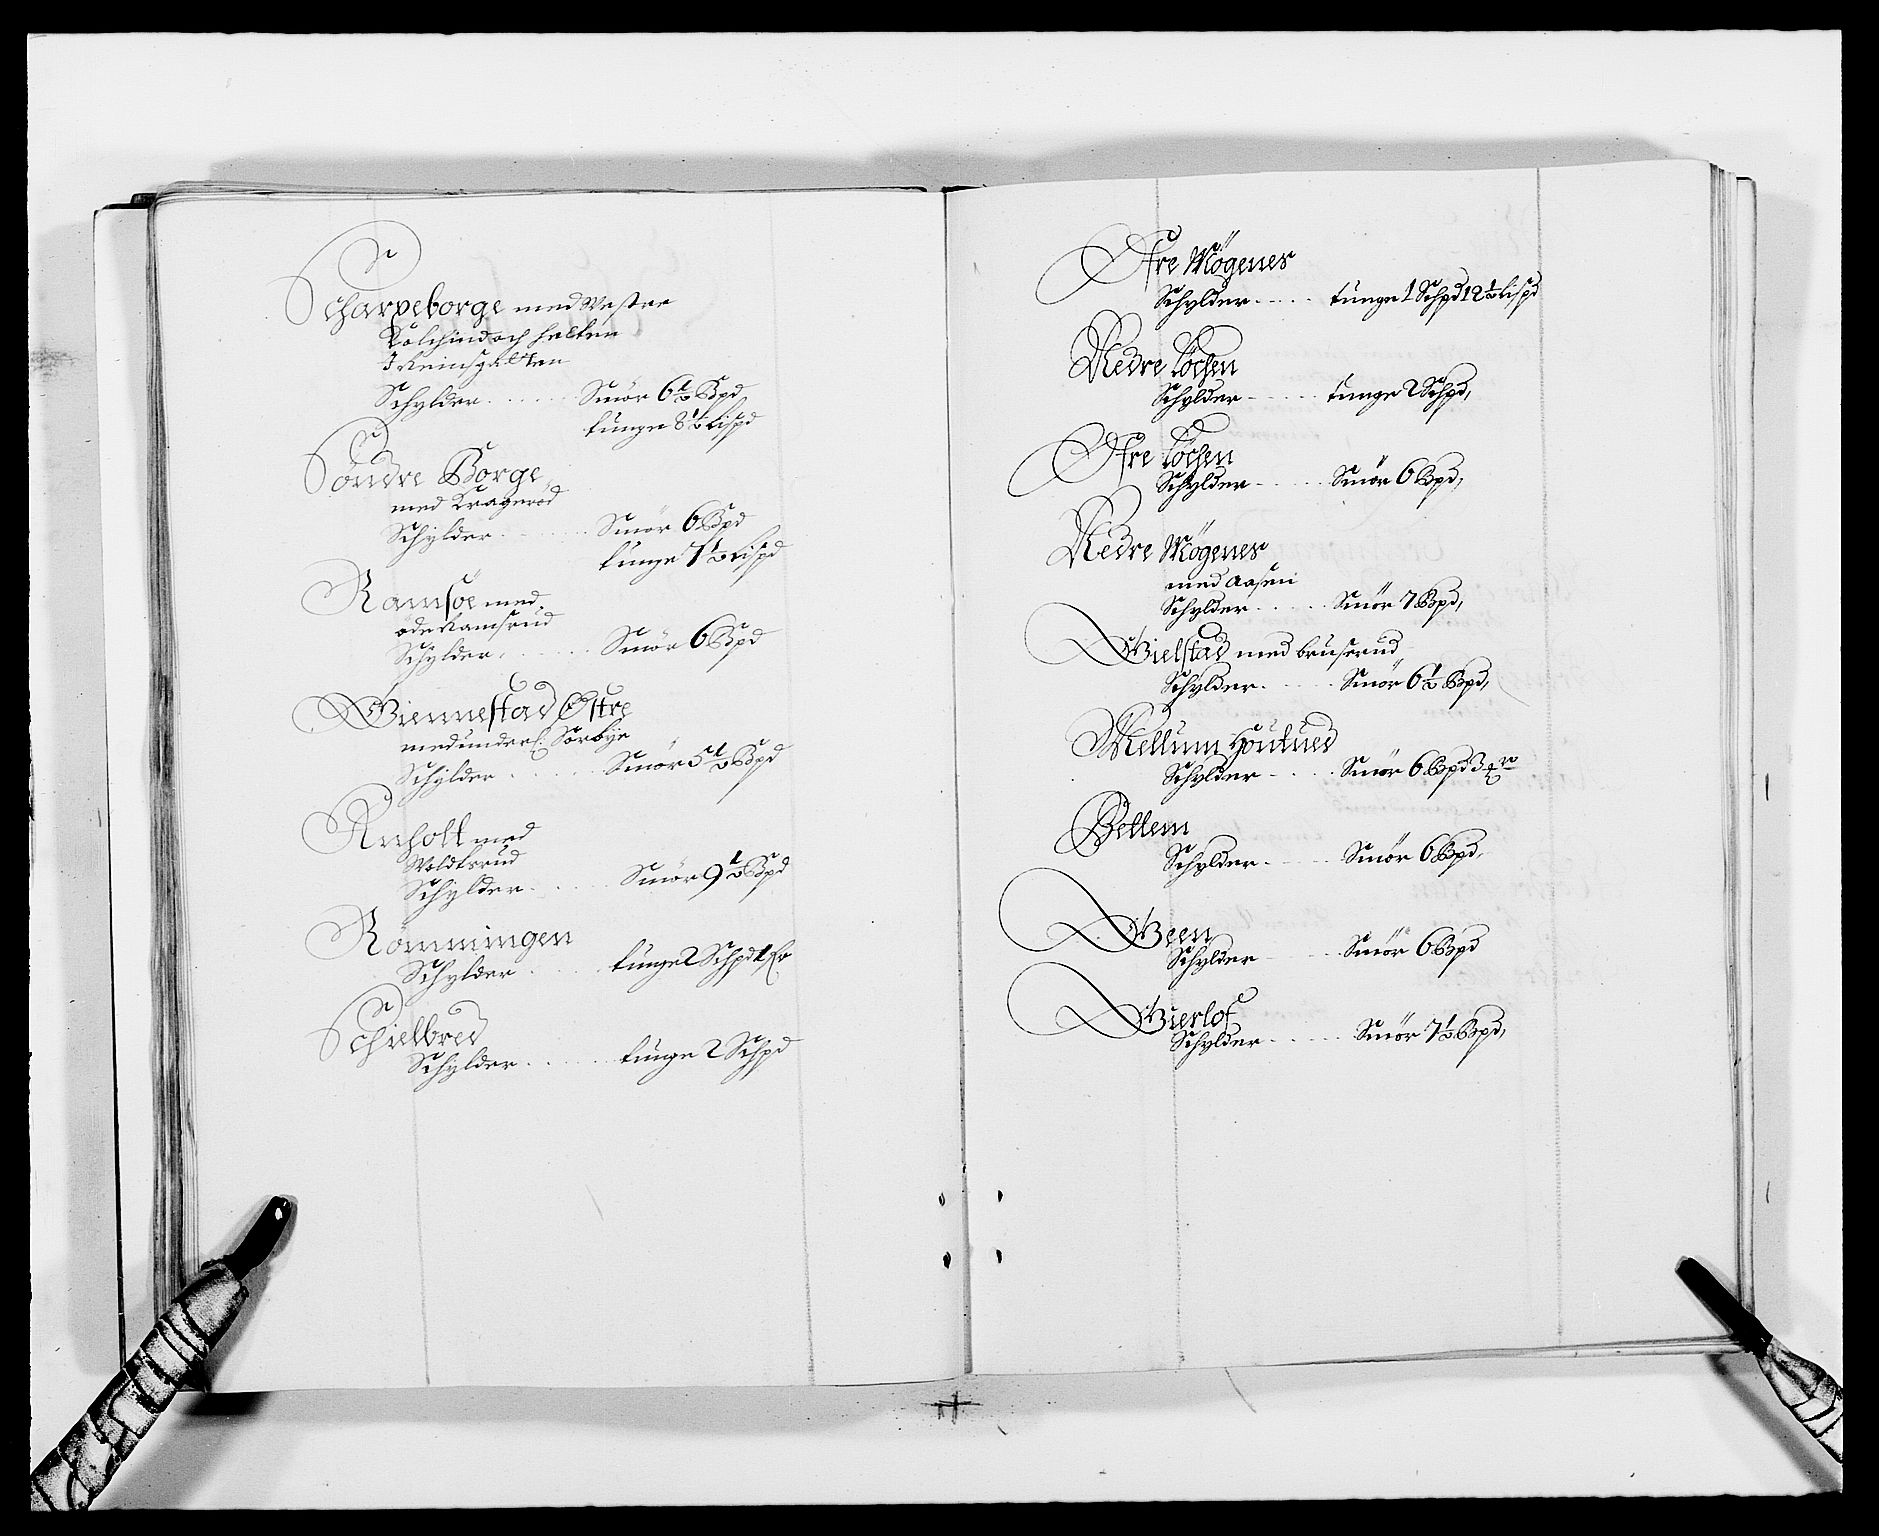 Scharpeborge med Vestre
Kolchind och halten
I Reinsgalten
Schylder . . . . . Smör 6½ Bpd
tunge 8½ Lispd
Söndre Borge
med Krageröd
Schylder . . . . . Smör 6 Bpd
tunge 7½ Lispd
Ramsöe med
öde Ramsrud
Schylder . . . . . Smör 6 Bpd
Giennestad Östre
med underl: Sörbye
Schylder . . . . . Smör 5½ Bpd
Anholt med
Woldtsrud
Schylder . . . . . Smör 9½ Bpd
Römmingen
Schylder . . . . . tunge 2 Schpd 1 fr
Schielbred
Schylder . . . . . tunge 2 Schpd
Öfre Mögenes
Schylder . . . . . tunge 1 Schpd 12½ Lispd
Nedre Löchen
Schylder . . . . . tunge 2 Schpd,
Öfre Löchen
Schylder . . . . . Smör 6 Bpd,
Nedre Mögenes
med Aasen
Schylder . . . . . Smör 7 Bpd,
Gielstad med bruserud
Schylder . . . . . Smör 6½ Bpd,
Mellum Houtued
Schylder . . . . . Smör 6 Bpd 3
Betlem
Schylder . . . . . Smör 6 Bpd,
Geen
Schylder . . . . . Smör 6 Bpd
Gierlof
Schylder . . . . . Smör 7½ Bpd,